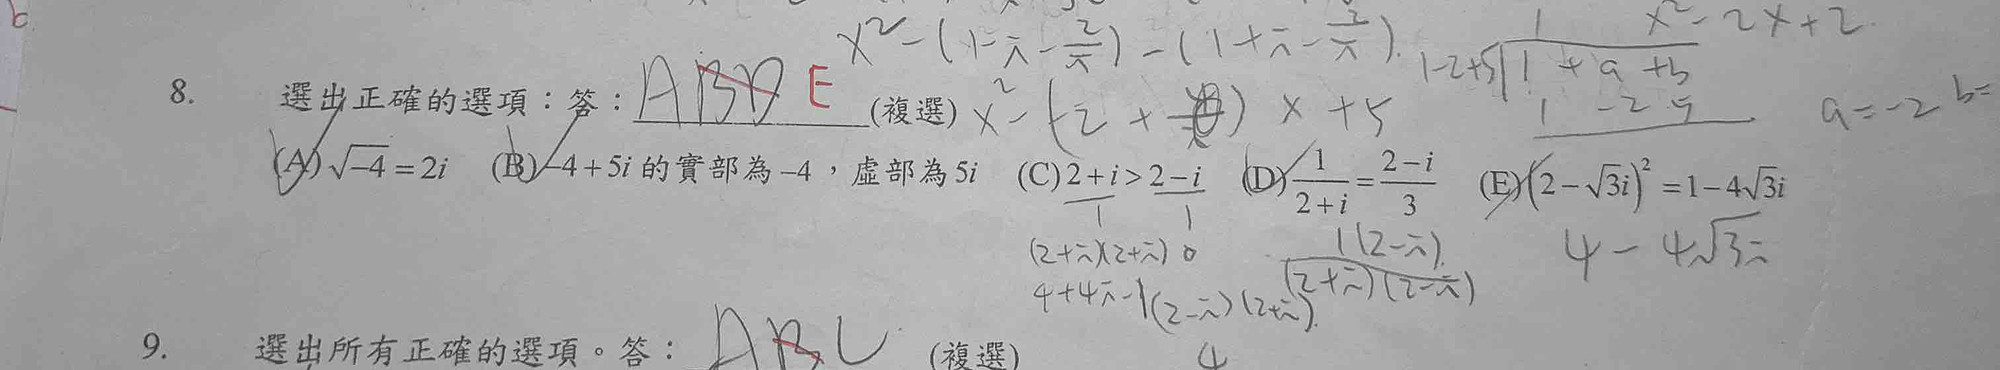 x² - (1 - i - 2/i) - (1 + i - 2/i)
x² - 2x + 2
8. 選出正確的選項：答：ABD E (複選)
x² - (2 + ) x + 5
1-2+5 1 + a + b
1 -2 5
a = -2 b =
(A) √-4 = 2i (B) -4+5i 的實部為 -4，虛部為 5i (C) 2+i > 2-i (D) 1/(2+i) = (2-i)/3 (E) (2-√3i)² = 1-4√3i
(2+i)(2+i) 0
1(2-i)
(2+i)(2-i)
4 - 4√3i
4+4i-1
(2-i)(2+i)
9. 選出所有正確的選項。答：ABC (複選)
4